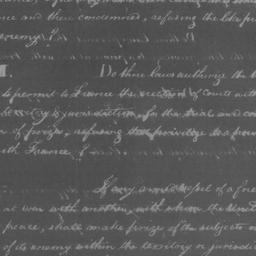 and then condemned, refusing the like pri
enemy?
Do those laws authorize the
to permit to France the erection of courts with
territory & jurisdiction, for the trial and con
of prizes, refusing that privilege to a power
with France?
If any armed vessel of a fore
at war with another, with whom the Unit
peace, shall make prize of the subjects or
of its enemy within the territory or jurisdic